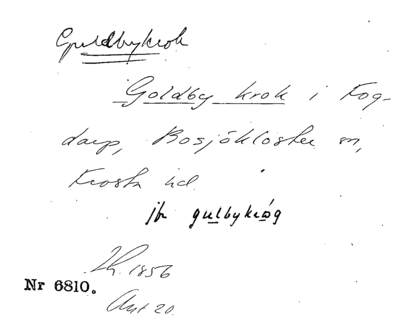 Guldbykrok
Goldby krok i Fog-
darp, Bosjökloster sn,
Frosta hd
jfr gulbykróg
Lh. 1856
Nr 6810.
Ant 20.